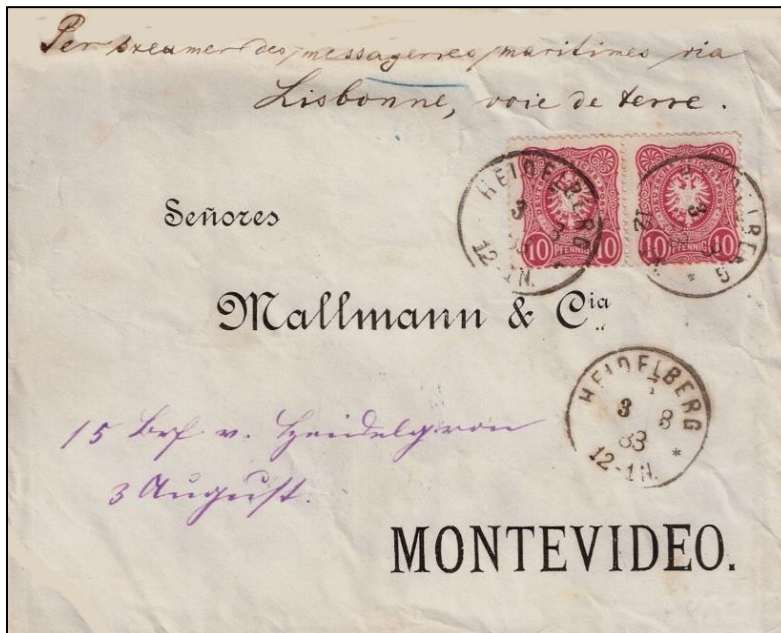 Per steamer des messageries maritimes via
Lisbonne, voie de terre.
HEIDELBERG
3 8
12-1N.
10 PFENNIG 10
10 PFENNIG 10
Señores
Mallmann & Cia
HEIDELBERG
3 8
83
12-1N. *
15 Brf. v.
3 August.
MONTEVIDEO.